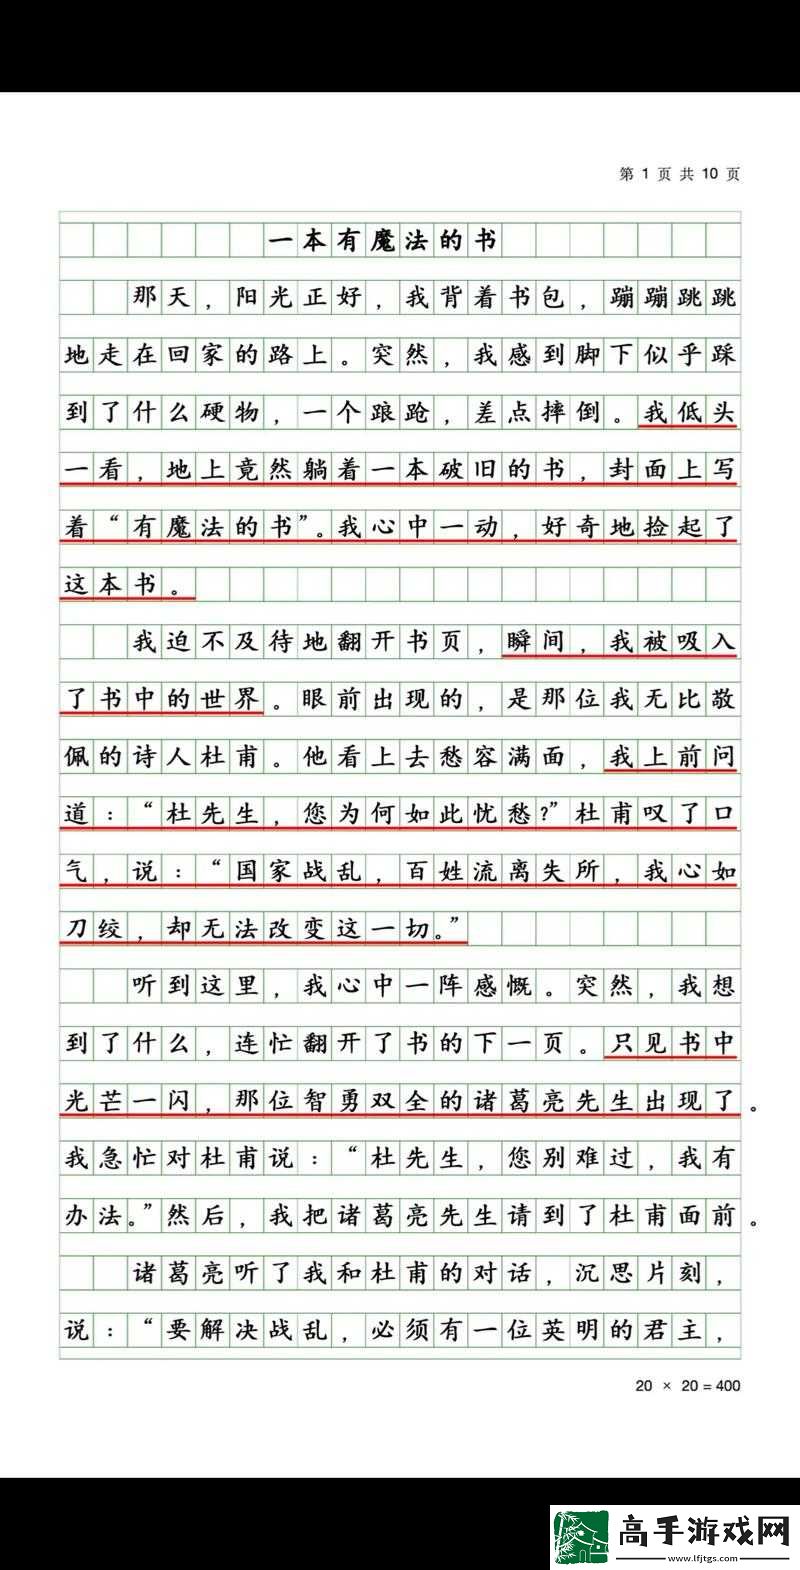 第 1 页 共 10 页
一本有魔法的书
那天，阳光正好，我背着书包，蹦蹦跳跳
地走在回家的路上。突然，我感到脚下似乎踩
到了什么硬物，一个踉跄，差点摔倒。我低头
一看，地上竟然躺着一本破旧的书，封面上写
着“有魔法的书”。我心中一动，好奇地捡起了
这本书。
我迫不及待地翻开书页，瞬间，我被吸入
了书中的世界。眼前出现的，是那位我无比敬
佩的诗人杜甫。他看上去愁容满面，我上前问
道：“杜先生，您为何如此忧愁?”杜甫叹了口
气，说：“国家战乱，百姓流离失所，我心如
刀绞，却无法改变这一切。”
听到这里，我心中一阵感慨。突然，我想
到了什么，连忙翻开了书的下一页。只见书中
光芒一闪，那位智勇双全的诸葛亮先生出现了。
我急忙对杜甫说：“杜先生，您别难过，我有
办法。”然后，我把诸葛亮先生请到了杜甫面前。
诸葛亮听了我和杜甫的对话，沉思片刻，
说：“要解决战乱，必须有一位英明的君主，
20 × 20 = 400
高手游戏网
www.lfjtgs.com